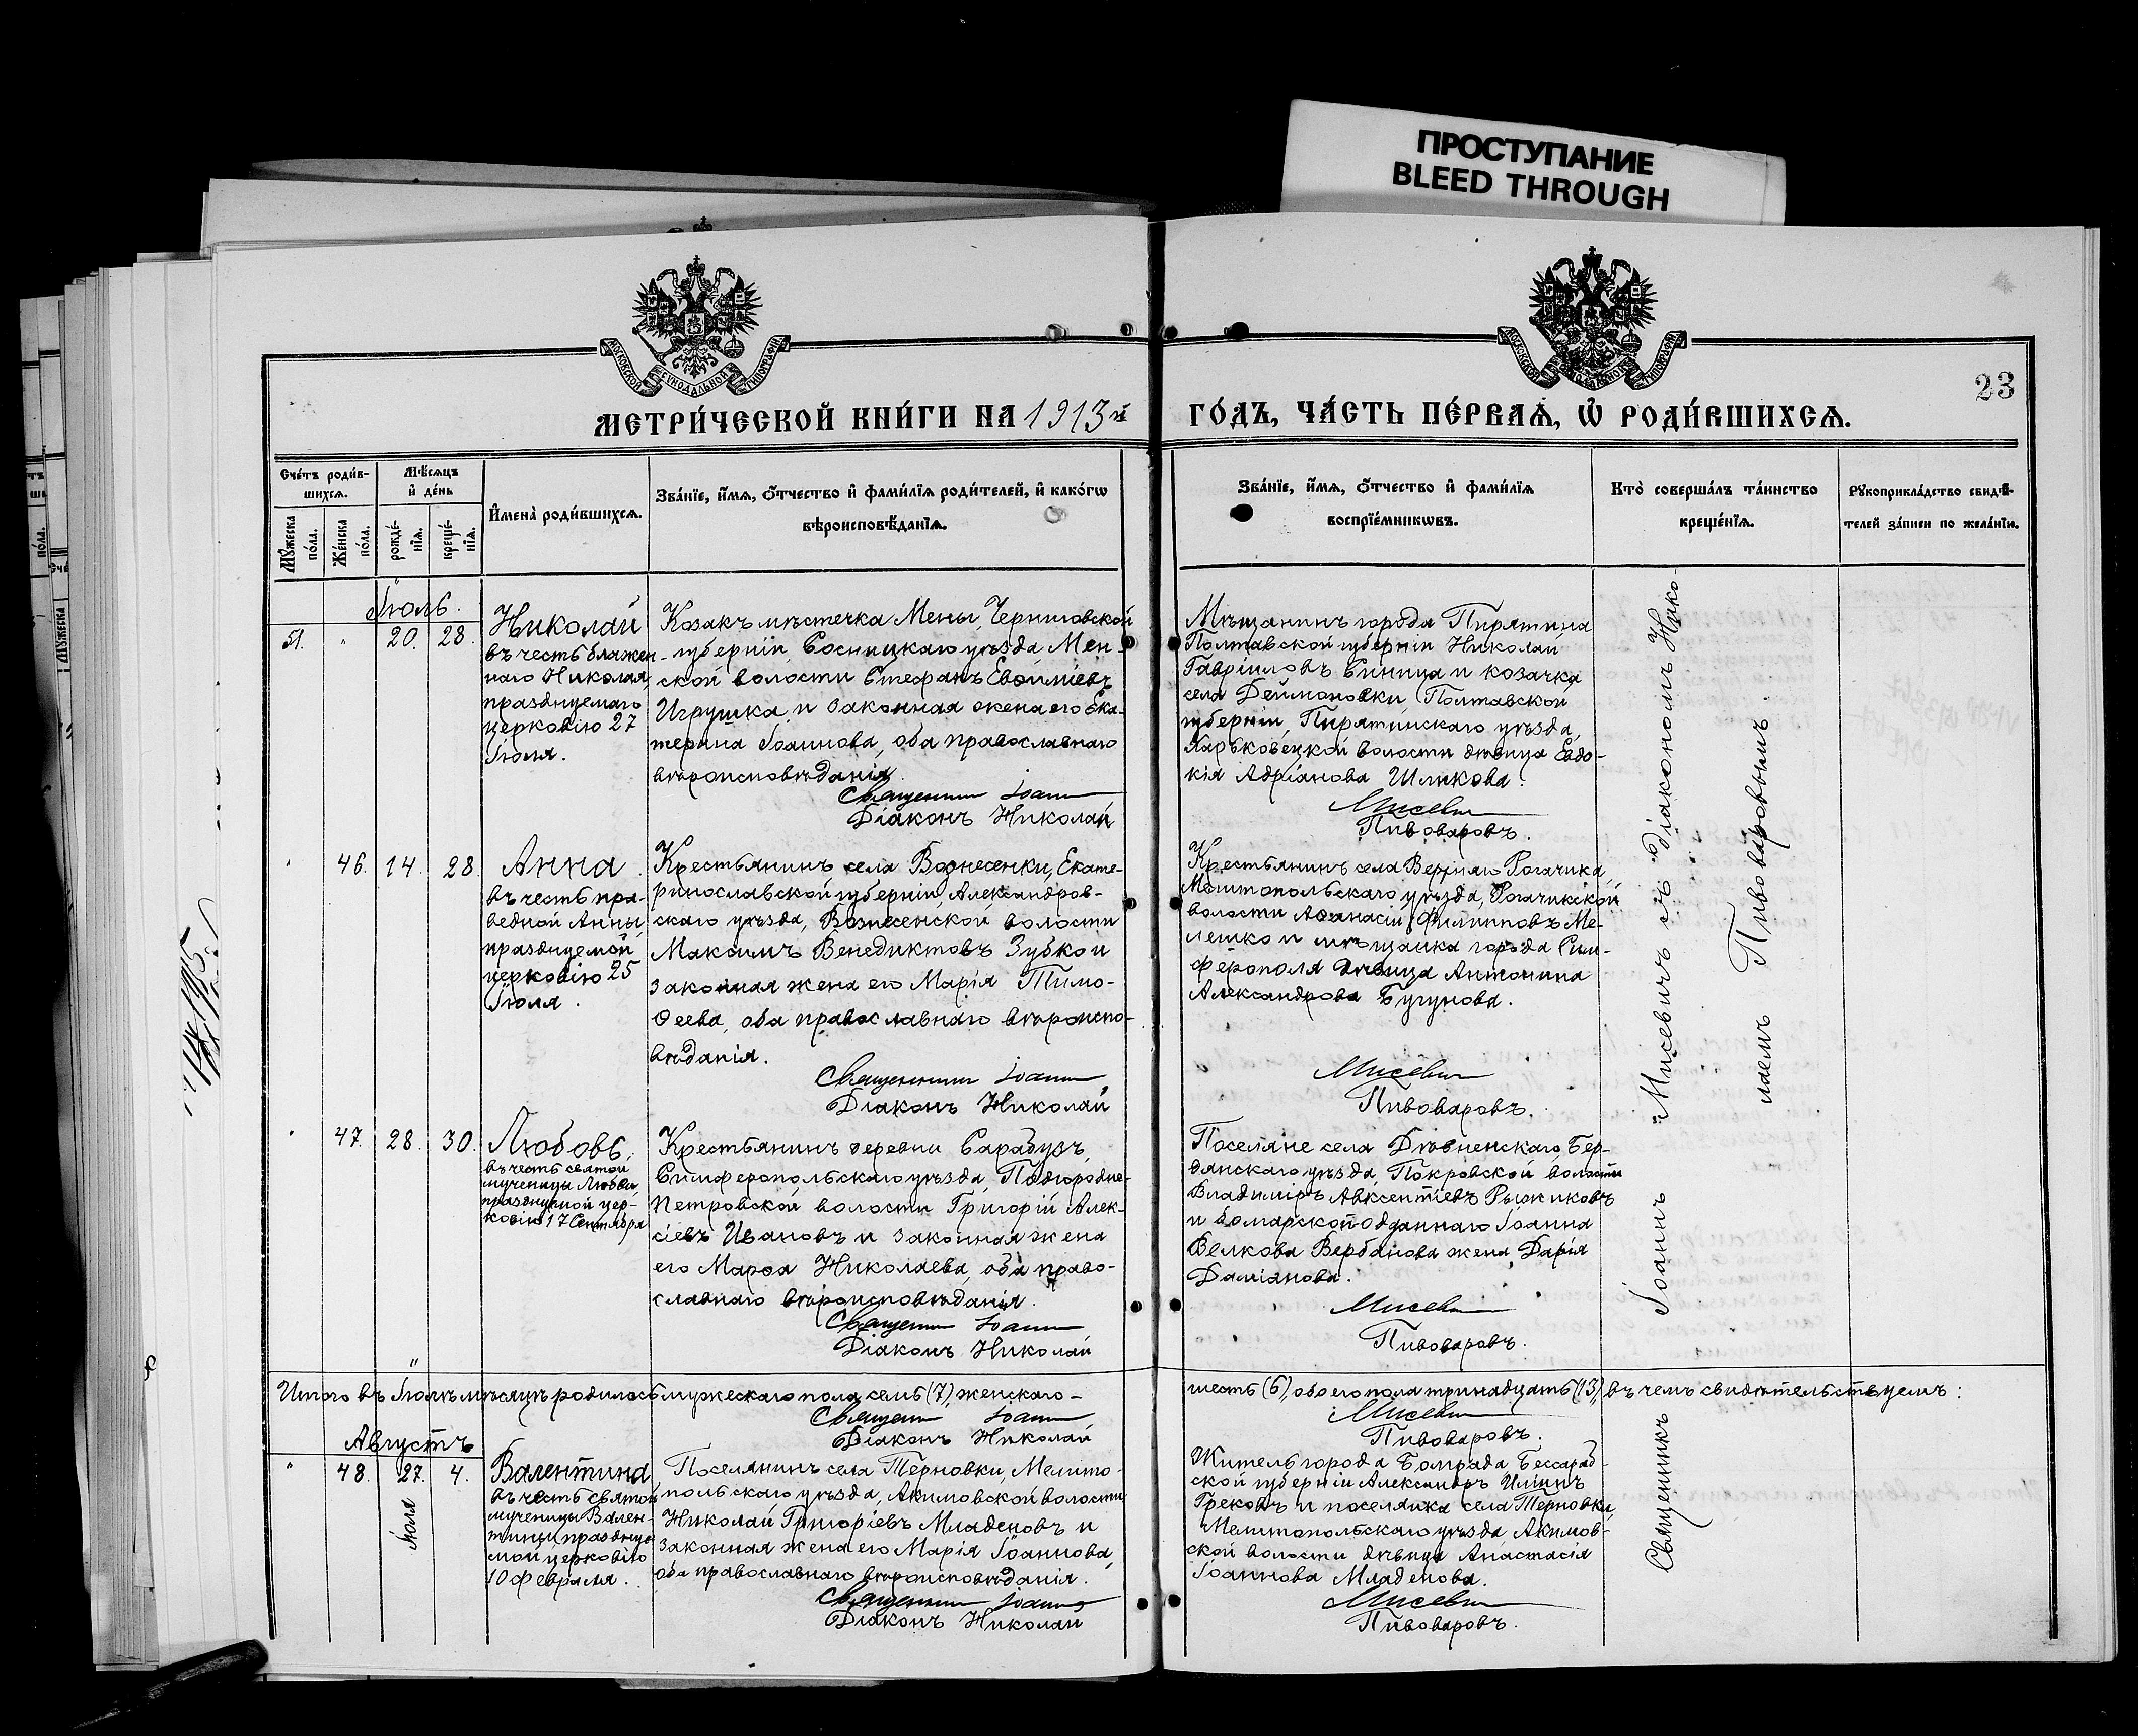 ПРОСТУПАНИЕ
BLEED THROUGH
МОСКОВСКОЙ СѴНОДАЛЬНОЙ ТИПОГРАФІИ
МОСКОВСКОЙ СѴНОДАЛЬНОЙ ТИПОГРАФІИ
23
МЕТРИ́ЧЕСКОЙ КНИ́ГИ НА 1913й
ГО́ДЪ, ЧА́СТЬ ПЕ́РВАЯ, Ѡ҆ РОДИ́ВШИХСЯ.
Сче́тъ роди́в-
шихся.
Мѣ́сяцъ
и҆ де́нь
Мꙋ́жеска
по́ла.
Же́нска
по́ла.
рожде́-
нїя.
креще́-
нїя.
И҆мена̀ роди́вшихся.
Зва́нїе, и҆́мя, ѻ҆́тчество и҆ фами́лїя роди́телей, и҆ како́гѡ
вѣроисповѣ́данїя.
Зва́нїе, и҆́мя, ѻ҆́тчество и҆ фами́лїя
воспрїе́мникѡвъ.
Кто̀ соверша́лъ та́инство
креще́нїя.
Рꙋкоприкла́дство свидѣ́-
телей за́писи по жела́нїю.
Іюль.
51. " 20. 28.
Николай
въ честь блажен-
наго Николая,
празднуемаго
церковію 27
Іюля.
Козакъ мѣстечка Мены, Черниговской
губерніи, Сосницкаго уѣзда, Мен-
ской волости Стефанъ Евѳиміевъ
Игрушка и законная жена его Ека-
терина Іоаннова, оба православнаго
вѣроисповѣданія.
Священникъ Іоаннъ
Діаконъ Николай
Мѣщанинъ города Пирятина
Полтавской губерніи Николай
Гавріиловъ Синица и козачка
села Деймановки, Полтавской
губерніи, Пирятинскаго уѣзда,
Харьковецкой волости дѣвица Евдо-
кія Адріанова Шликова.
Мисевичъ
Пивоваровъ.
" 46. 14. 28.
Анна.
въ честь пра-
ведной Анны,
празднуемой
церковію 25
Іюля.
Крестьянинъ села Вознесенки, Екате-
ринославской губерніи, Александров-
скаго уѣзда, Вознесенской волости
Максимъ Венедиктовъ Зубко и
законная жена его Марія Тимо-
ѳеева, оба православнаго вѣроиспо-
вѣданія.
Священникъ Іоаннъ
Діаконъ Николай
Крестьянинъ села Верхняго Рогачика,
Мелитопольскаго уѣзда, Рогачикской
волости Аѳанасій Филипповъ Ме-
лешко и мѣщанка города Сим-
ферополя дѣвица Антонина
Александрова Бугунова.
Мисевичъ
Пивоваровъ.
" 47. 28. 30.
Любовь.
въ честь святой
мученицы Любви,
празднуемой цер-
ковію 17 Сентября
Крестьянинъ деревни Сарабузъ,
Симферопольскаго уѣзда, Подгородне-
Петровской волости Григорій Алек-
сіевъ Ивановъ и законная жена
его Марѳа Николаева, оба право-
славнаго вѣроисповѣданія.
Священникъ Іоаннъ
Діаконъ Николай
Поселяне села Дѣвненскаго, Бер-
дянскаго уѣзда, Покровской волости
Владиміръ Авксентіевъ Рыжиковъ
и болгарской подданнаго Іоанна
Велкова Вербанова жена Дарія
Даміанова.
Мисевичъ
Пивоваровъ.
Итого въ Іюлѣ мѣсяцѣ родилось мужескаго пола семь (7), женскаго-
шесть (6), обоего пола тринадцать (13), въ чемъ свидѣтельствуемъ:
Священникъ Іоаннъ
Діаконъ Николай
Мисевичъ
Пивоваровъ.
Августъ
" 48. 27. 4.
Іюля
Валентина
въ честь святой
мученицы Вален-
тины, празднуе-
мой церковію
10 Февраля.
Поселянинъ села Терновки, Мелито-
польскаго уѣзда, Акимовской волости
Николай Григоріевъ Младеновъ и
законная жена его Марія Іоаннова,
оба православнаго вѣроисповѣданія.
Священникъ Іоаннъ
Діаконъ Николай
Житель города Болграда Бессараб-
ской губерніи Александръ Иліинъ
Грековъ и поселянка села Терновки,
Мелитопольскаго уѣзда, Акимов-
ской волости дѣвица Анастасія
Іоаннова Младенова.
Мисевичъ
Пивоваровъ.
Священникъ Іоаннъ Мисевичъ съ діакономъ Нико-
лаемъ Пивоваровымъ.